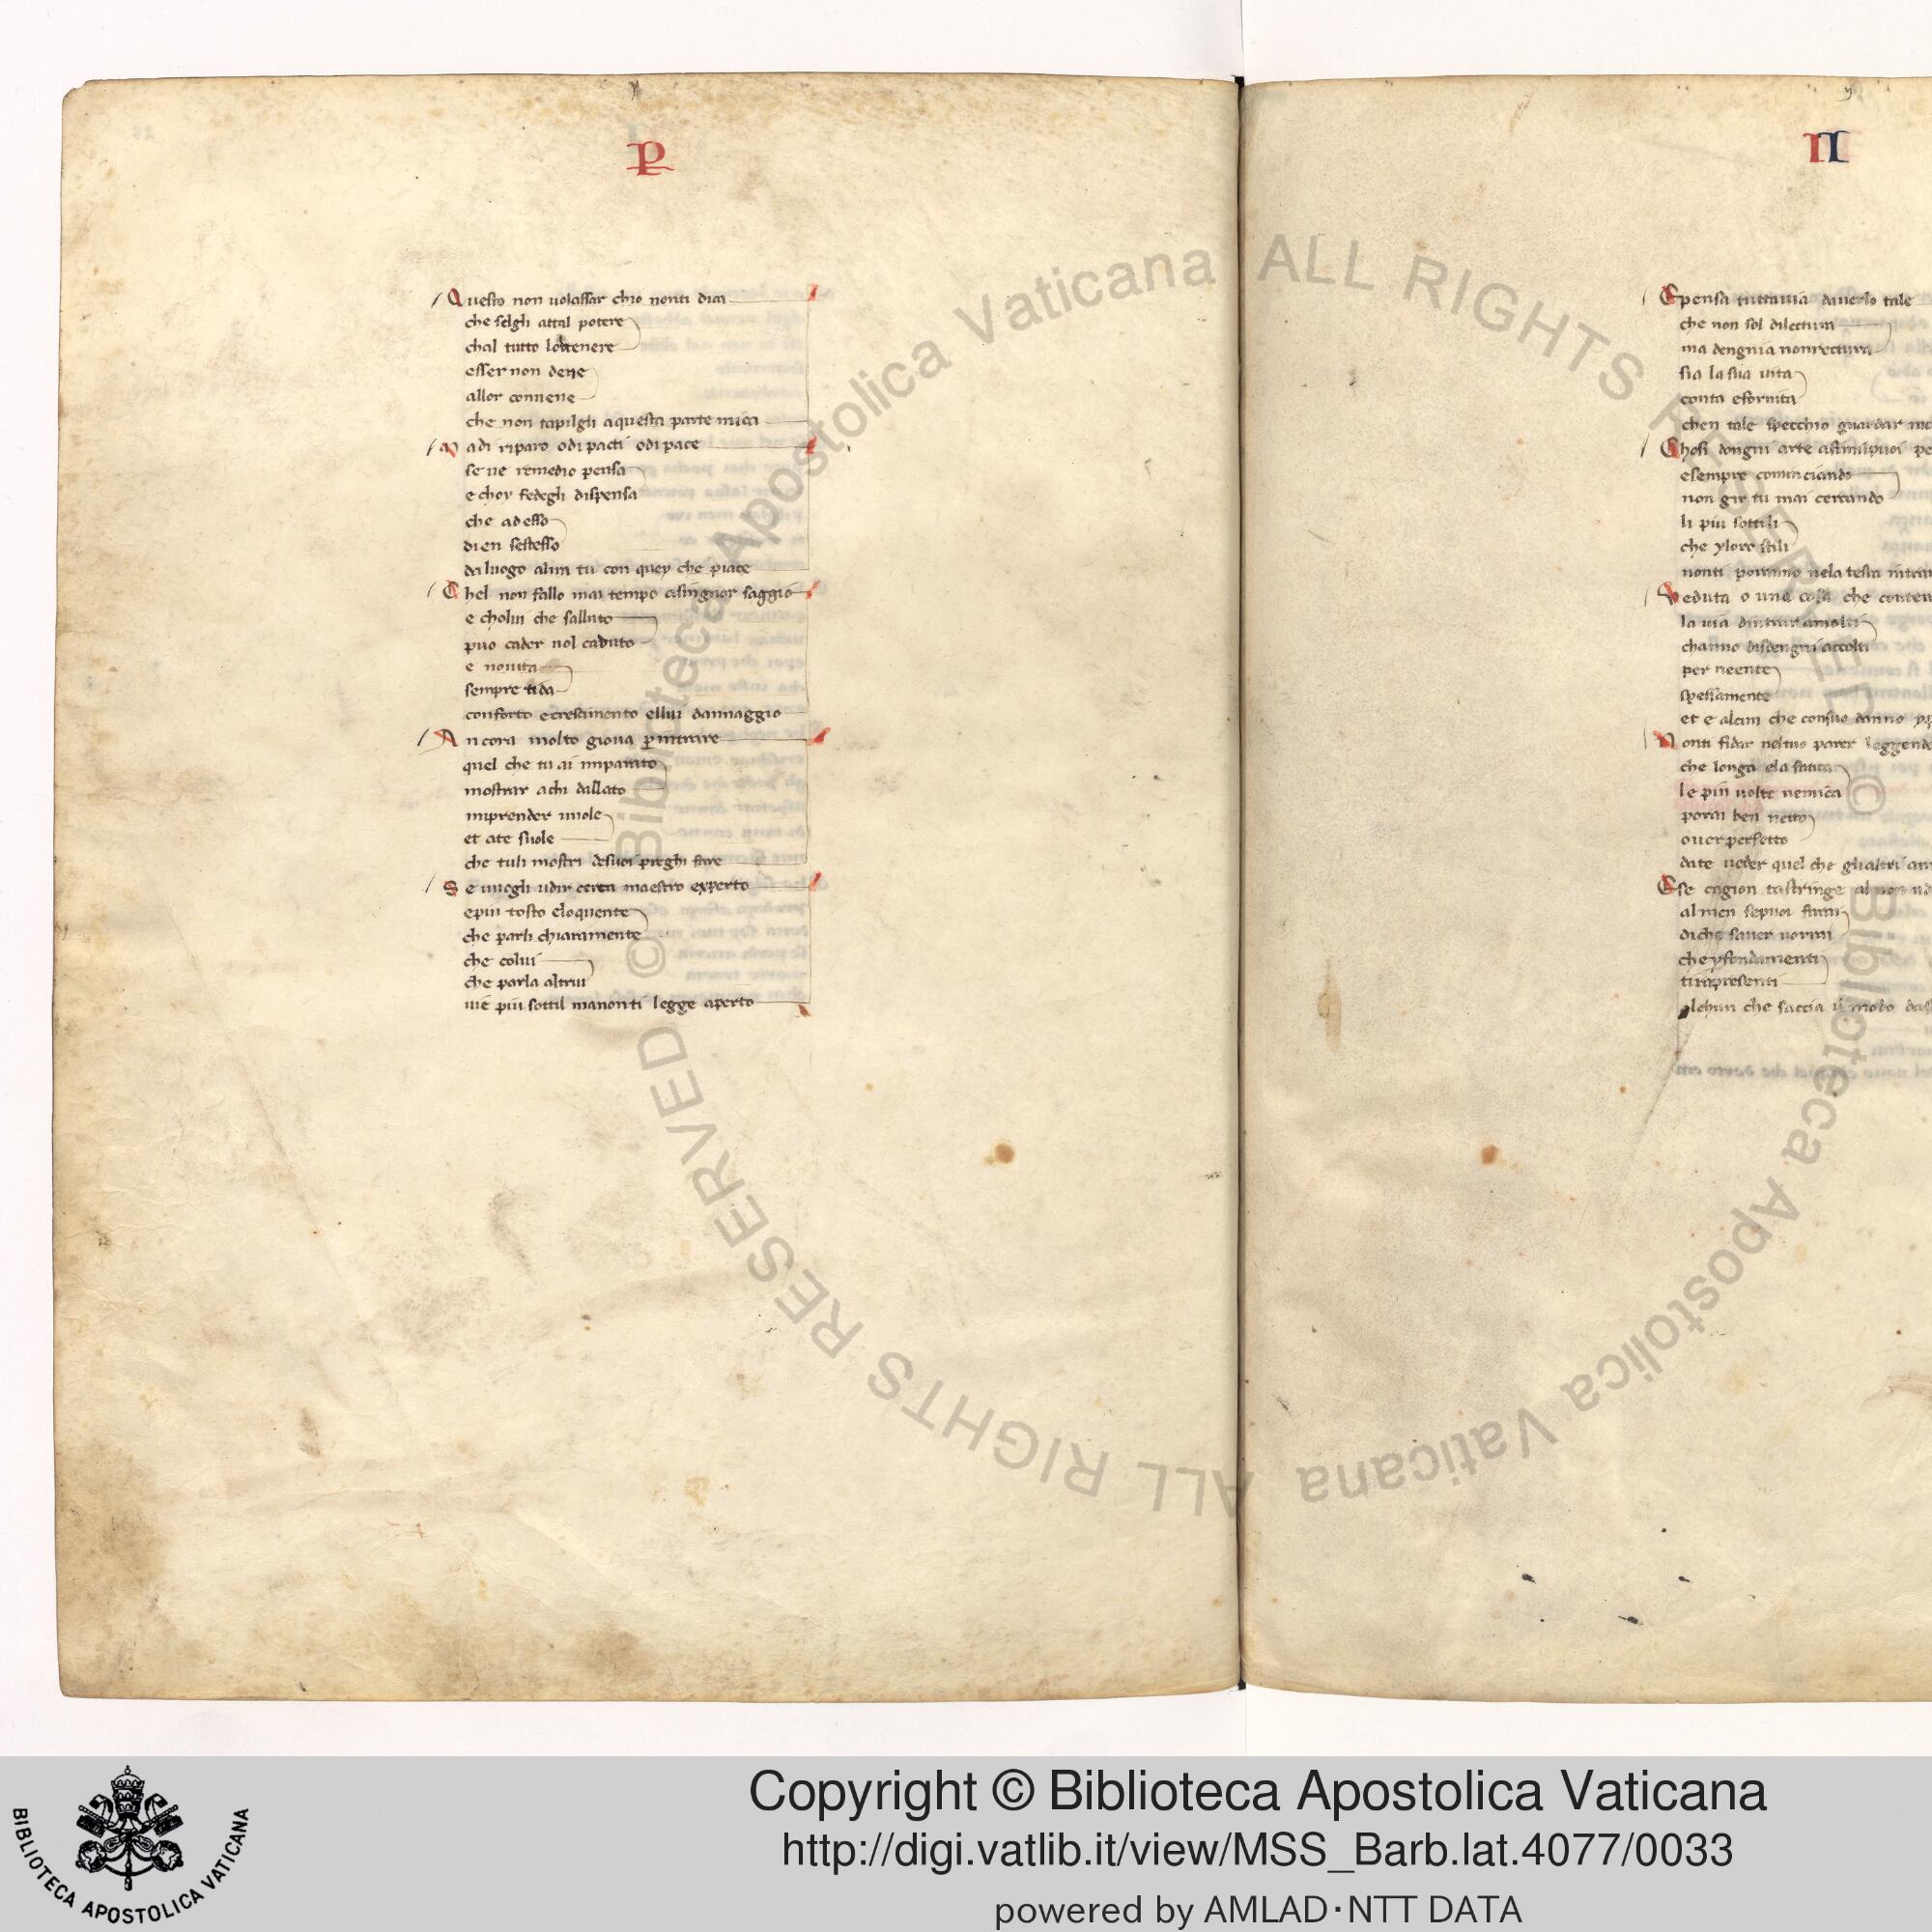 P
II
Questo non uolassar chio nonti dica
che selgh attal potere
chal tutto lottenere
esser non deue
allor conuene
che non tapilgli aquesta parte mica
Ma di riparo odi pacti odi pace
se ue remedio pensa
e chor fedegli dispensa
che adesso
dien sestesso
da luogo alira tu con quey che piace
Chel non fallo mai tempo asingnor saggio
e cholui che salluto
puo cader nol caduto
e nouita
sempre tida
conforto ecrescimento ellui dannaggio
Ancora molto gioua pintrare
quel che tu ai imparato
mostrar achi dallato
imprender uuole
et ate suole
che tuli mostri desuoi prieghi fare
Se uuogli udir cerca maestro experto
epiu tosto eloquente
che parli chiaramente
che colui
che parla altrui
uie piu sottil manonti legge aperto
Epensa tuttauia dauerlo tale
che non sol dilectura
ma dengnia nonrectura
sia la sua uita
conta eforuita
chen tale specchio guardar
Chosi dongni arte
esempre cominciando
non gir tu mai cercando
li piu sottili
che yloro stili
nonti poranno nela testa
Veduta o una cosa che
la uia
channo disdengni accolti
per neente
spessamente
et e alcun che consuo danno
Nonti fidar neltuo parer leggendo
che longa ela fatica
le piu uolte nemica
porai ben netto
ouer perfetto
date ueder quel che glialtri
Ese cagion tastringe
almen sepuoi farai
diche sauer uorrai
che yfondamenti
tirapresenti
alchun che saccia il modo
© Biblioteca Apostolica Vaticana ALL RIGHTS RESERVED © Biblioteca Apostolica Vaticana ALL RIGHTS RESERVED
BIBLIOTECA APOSTOLICA VATICANA
Copyright © Biblioteca Apostolica Vaticana
http://digi.vatlib.it/view/MSS_Barb.lat.4077/0033
powered by AMLAD·NTT DATA